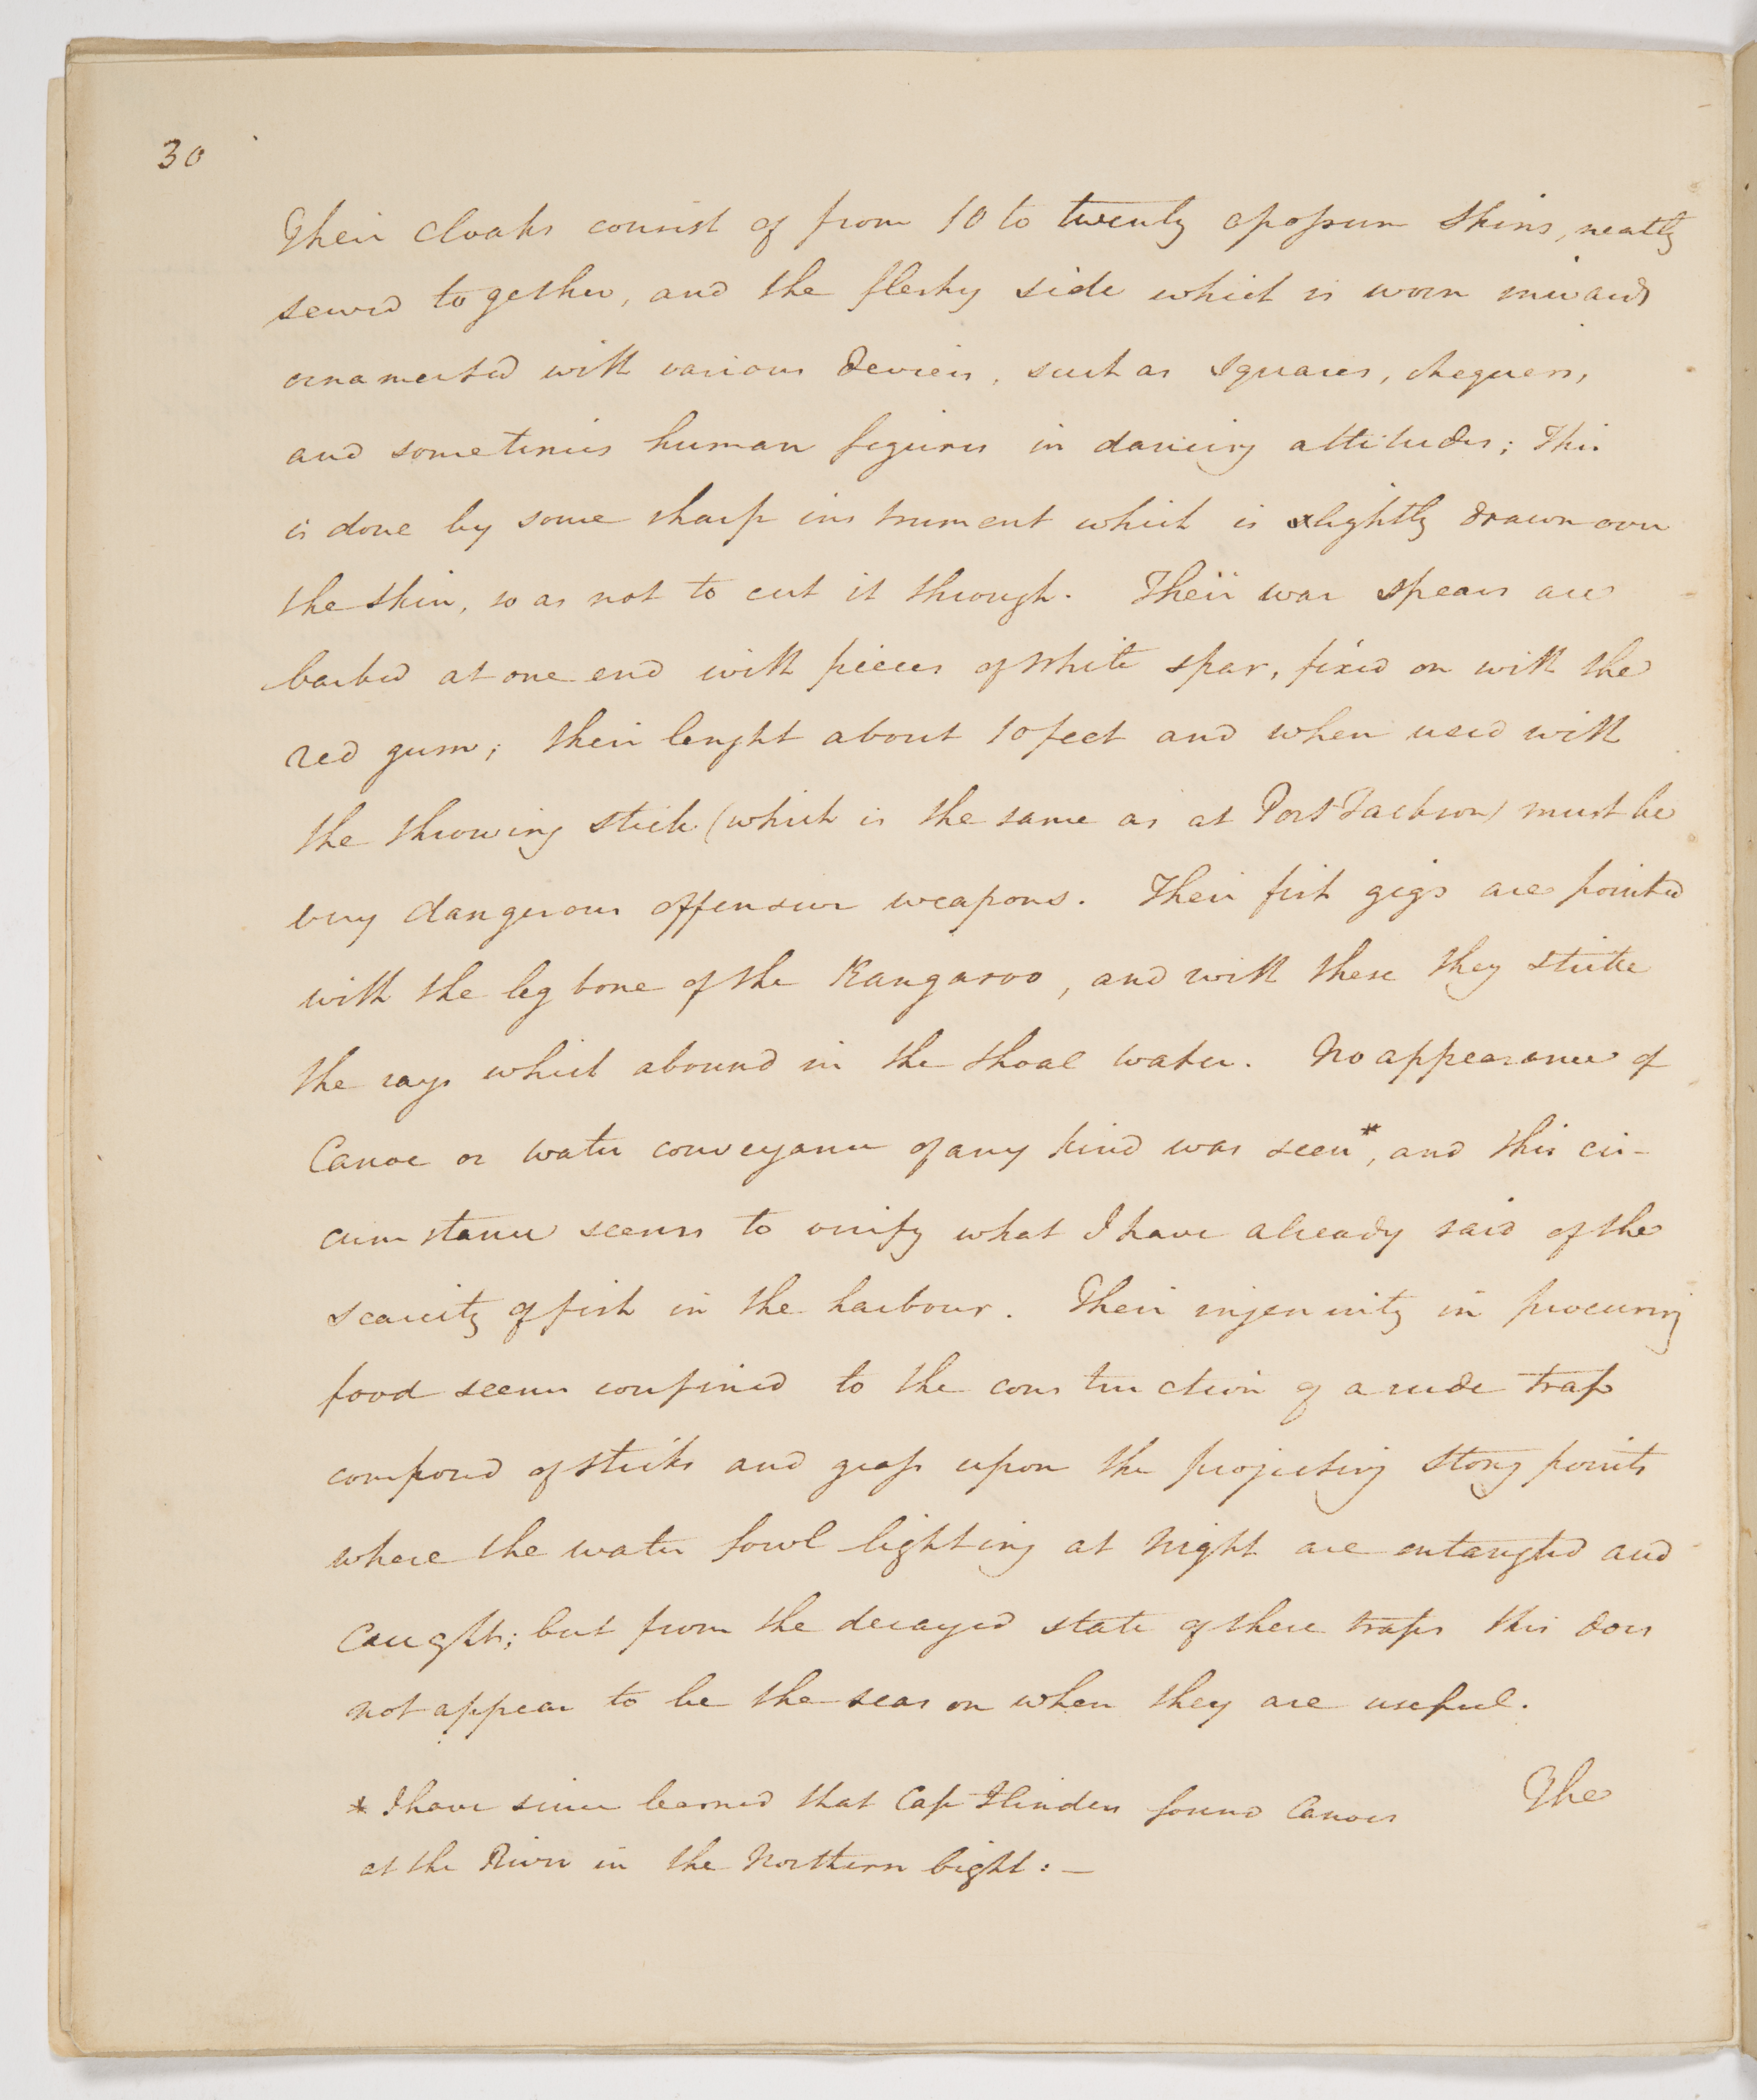 30
Their cloaks consist of from 10 to twenty opossum skins, neatly
sewed together, and the fleshy side which is worn inwards
ornamented with various devices, such as squares, chequers,
and sometimes human figures in dancing attitudes; This
is done by some sharp instrument which is slightly drawn over
the skin, so as not to cut it through. Their war spears are
barbed at one end with pieces of White spar, fixed on with the
red gum; their lenght about 10 feet and when used with
the throwing stick (which is the same as at Port Jackson) must be
very dangerous offensive weapons. Their fish gigs are pointed
with the leg bone of the Kangaroo, and with these they strike
the rays which abound in the shoal water. No appearance of
Canoe or water conveyance of any kind was seen*, and this cir-
cumstance seems to verify what I have already said of the
scarcity of fish in the harbour. Their ingenuity in procuring
food seems confined to the construction of a rude trap
composed of sticks and grass upon the projecting stony points
where the water fowl lighting at night are entangled and
Caught; but from the decayed state of these traps this does
not appear to be the season when they are useful.
* I have since learned that Cap Flinders found Canoes
at the River in the Northern bight: —
The